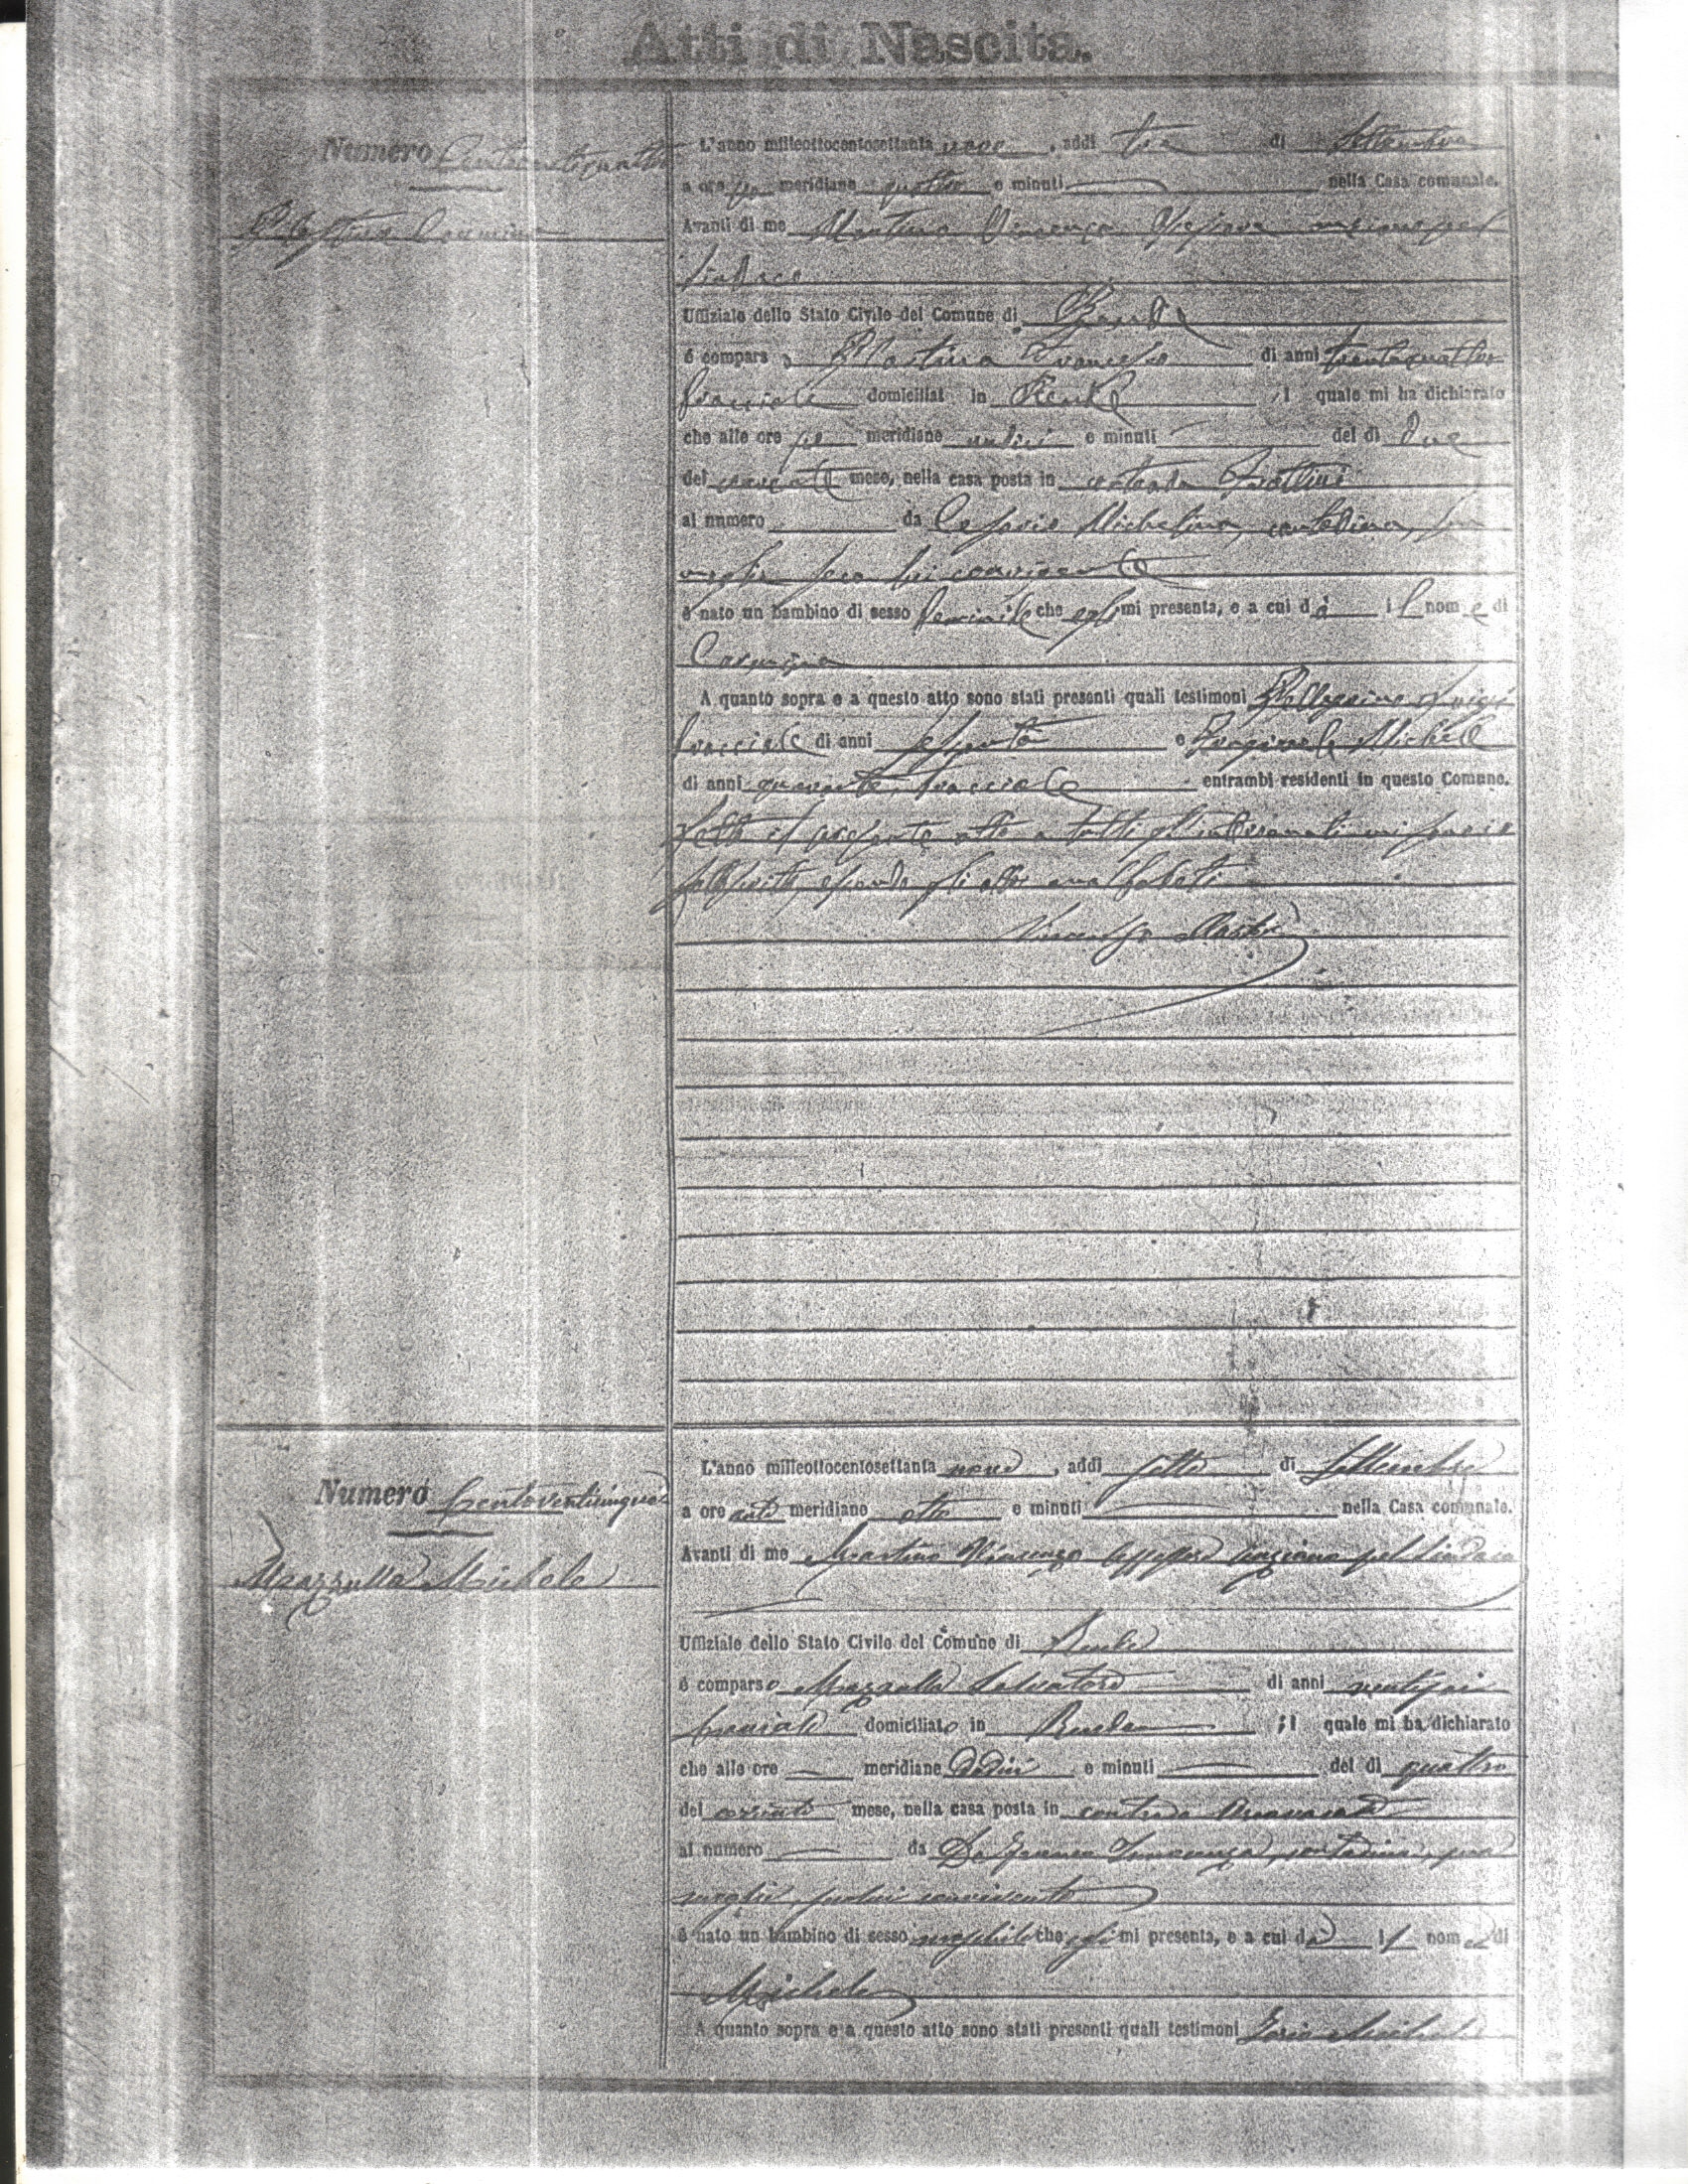 Atti di Nascita.
Numero
L'anno milleottocentosettanta nove, addì tre di Settembre
a ore po meridiane quattro e minuti nella Casa comunale.
Avanti di me Martino Vincenzo Assessore anziano pel
Sindaco
Uffiziale dello Stato Civile del Comune di Rende
è comparso Francesco di anni trentaquattro
bracciale domiciliat in Rende il quale mi ha dichiarato
che alle ore po meridiane undici e minuti del dì due
del corrente mese, nella casa posta in contrada
al numero da Michelina, contadina, sua
moglie seco lui convivente
è nato un bambino di sesso feminile che egli mi presenta, e a cui dà il nome di
Carmina
A quanto sopra e a questo atto sono stati presenti quali testimoni Pellegrino Luigi
bracciale di anni sessanta e Michele
di anni quaranta, bracciale entrambi residenti in questo Comune.
Letto il presente atto a tutti gl'intervenuti mi sono io
sottoscritto, essendo gli altri analfabeti
Vincenzo Martino
Numero centoventicinque
Mazzulla Michele
L'anno milleottocentosettanta nove, addì sette di Settembre
a ore anti meridiane otto e minuti nella Casa comunale.
Avanti di me Martino Vincenzo Assessore anziano pel Sindaco
Uffiziale dello Stato Civile del Comune di Rende
è comparso Mazzulla Salvatore di anni ventisei
bracciale domiciliato in Rende il quale mi ha dichiarato
che alle ore meridiane dodici e minuti del dì quattro
del corrente mese, nella casa posta in contrada
al numero da De Franco contadina, sua
moglie seco lui convivente
è nato un bambino di sesso maschile che egli mi presenta, e a cui dà il nome di
Michele
A quanto sopra e a questo atto sono stati presenti quali testimoni